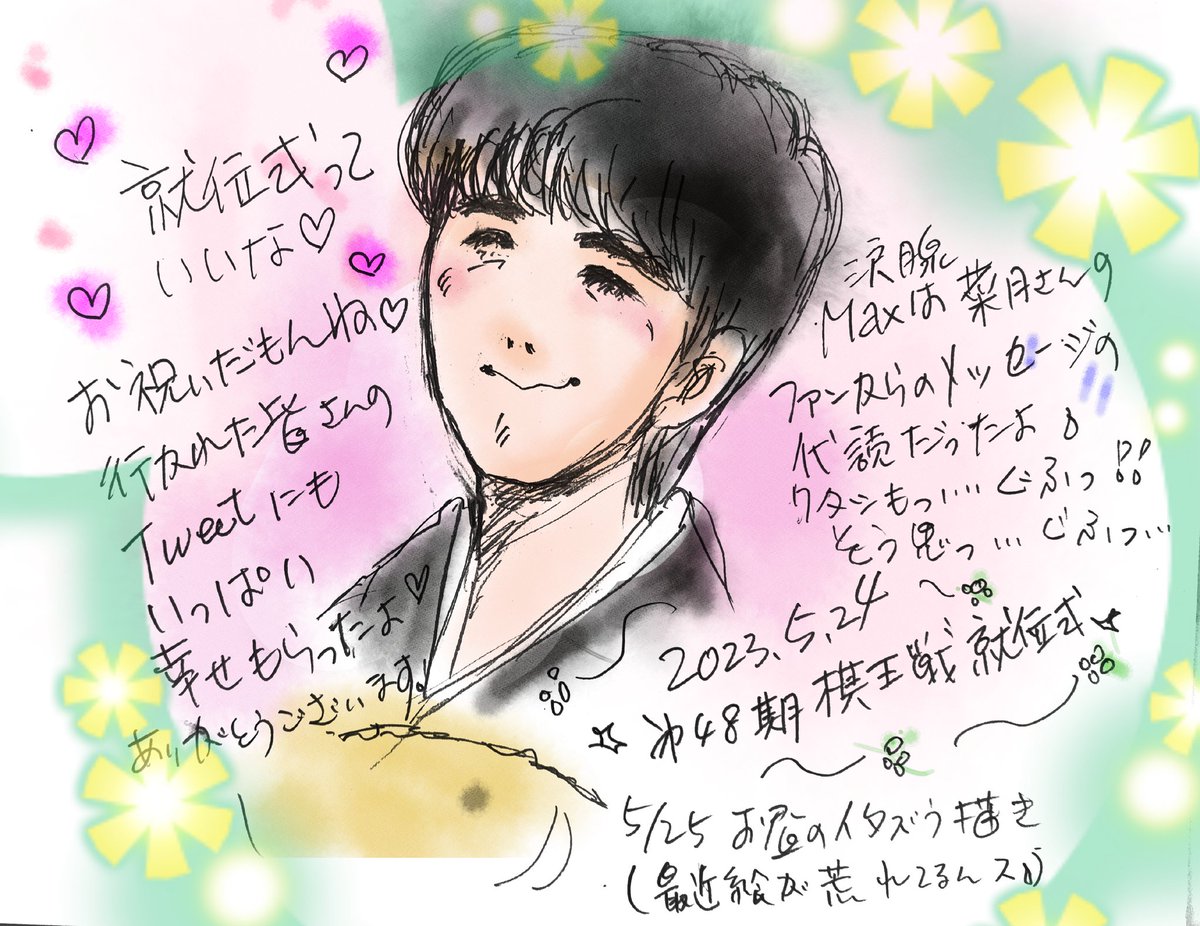 就位式って
いいな♡
お祝いだもんね♡
行かれた皆さんの
Tweetにも
いっぱい
幸せもらったよ♡
ありがとうございます!
涙腺
Maxは菜月さんの
ファンからのメッセージの
代読だったよ
ワタシもっ…ぐふっ!!
そう思っ…ぐふっ…
2023.5.24
☆ 第48期棋王戦就位式☆
5/25 お昼のイタズラ描き
(最近絵が荒れてるんス)